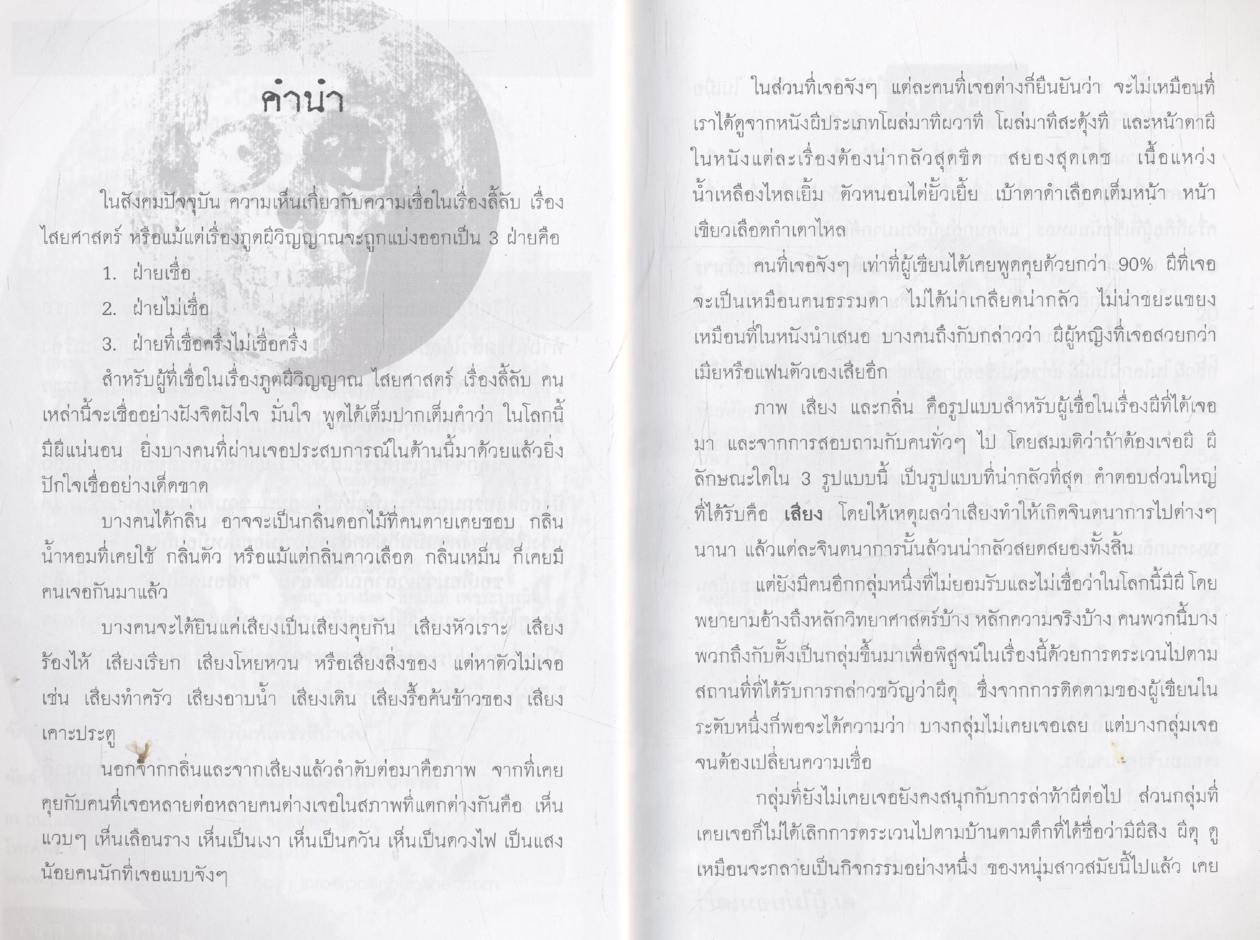 คำนำ
ในสังคมปัจจุบัน ความเห็นเกี่ยวกับความเชื่อในเรื่องลี้ลับ เรื่อง
ไสยศาสตร์ หรือแม้แต่เรื่องภูตผีวิญญาณจะถูกแบ่งออกเป็น 3 ฝ่ายคือ
1. ฝ่ายเชื่อ
2. ฝ่ายไม่เชื่อ
3. ฝ่ายที่เชื่อครึ่งไม่เชื่อครึ่ง
สำหรับผู้ที่เชื่อในเรื่องภูตผีวิญญาณ ไสยศาสตร์ เรื่องลี้ลับ คน
เหล่านี้จะเชื่ออย่างฝังจิตฝังใจ มั่นใจ พูดได้เต็มปากเต็มคำว่า ในโลกนี้
มีผีแน่นอน ยิ่งบางคนที่ผ่านเจอประสบการณ์ในด้านนี้มาด้วยแล้วยิ่ง
ปักใจเชื่ออย่างเด็ดขาด
บางคนได้กลิ่น อาจจะเป็นกลิ่นดอกไม้ที่คนตายเคยชอบ กลิ่น
น้ำหอมที่เคยใช้ กลิ่นตัว หรือแม้แต่กลิ่นคาวเลือด กลิ่นเหม็น ก็เคยมี
คนเจอกันมาแล้ว
บางคนจะได้ยินแค่เสียงเป็นเสียงคุยกัน เสียงหัวเราะ เสียง
ร้องไห้ เสียงเรียก เสียงโหยหวน หรือเสียงสิ่งของ แต่หาตัวไม่เจอ
เช่น เสียงทำครัว เสียงอาบน้ำ เสียงเดิน เสียงรื้อค้นข้าวของ เสียง
เคาะประตู
นอกจากกลิ่นและจากเสียงแล้วลำดับต่อมาคือภาพ จากที่เคย
คุยกับคนที่เจอหลายต่อหลายคนต่างเจอในสภาพที่แตกต่างกันคือ เห็น
แวบๆ เห็นเลือนราง เห็นเป็นเงา เห็นเป็นควัน เห็นเป็นดวงไฟ เป็นแสง
น้อยคนนักที่เจอแบบจังๆ
ในส่วนที่เจอจังๆ แต่ละคนที่เจอต่างก็ยืนยันว่า จะไม่เหมือนที่
เราได้ดูจากหนังผีประเภทโผล่มาทีผวาที โผล่มาทีสะดุ้งที และหน้าตาผี
ในหนังแต่ละเรื่องต้องน่ากลัวสุดขีด สยองสุดเดช เนื้อแหว่ง
น้ำเหลืองไหลเยิ้ม ตัวหนอนไต่ยั้วเยี้ย เบ้าตาดำเลือดเต็มหน้า หน้า
เขียวเลือดกำเดาไหล
คนที่เจอจังๆ เท่าที่ผู้เขียนได้เคยพูดคุยด้วยกว่า 90% ผีที่เจอ
จะเป็นเหมือนคนธรรมดา ไม่ได้น่าเกลียดน่ากลัว ไม่น่าขยะแขยง
เหมือนที่ในหนังนำเสนอ บางคนถึงกับกล่าวว่า ผีผู้หญิงที่เจอสวยกว่า
เมียหรือแฟนตัวเองเสียอีก
ภาพ เสียง และกลิ่น คือรูปแบบสำหรับผู้เชื่อในเรื่องผีที่ได้เจอ
มา และจากการสอบถามกับคนทั่วๆ ไป โดยสมมติว่าถ้าต้องเจอผี ผี
ลักษณะใดใน 3 รูปแบบนี้ เป็นรูปแบบที่น่ากลัวที่สุด คำตอบส่วนใหญ่
ที่ได้รับคือ เสียง โดยให้เหตุผลว่าเสียงทำให้เกิดจินตนาการไปต่างๆ
นานา แล้วแต่ละจินตนาการนั้นล้วนน่ากลัวสยดสยองทั้งสิ้น
แต่ยังมีคนอีกกลุ่มหนึ่งที่ไม่ยอมรับและไม่เชื่อว่าในโลกนี้มีผี โดย
พยายามอ้างถึงหลักวิทยาศาสตร์บ้าง หลักความจริงบ้าง คนพวกนี้บาง
พวกถึงกับตั้งเป็นกลุ่มขึ้นมาเพื่อพิสูจน์ในเรื่องนี้ด้วยการตระเวนไปตาม
สถานที่ที่ได้รับการกล่าวขวัญว่าผีดุ ซึ่งจากการติดตามของผู้เขียนใน
ระดับหนึ่งก็พอจะได้ความว่า บางกลุ่มไม่เคยเจอเลย แต่บางกลุ่มเจอ
จนต้องเปลี่ยนความเชื่อ
กลุ่มที่ยังไม่เคยเจอยังคงสนุกกับการล่าท้าผีต่อไป ส่วนกลุ่มที่
เคยเจอก็ไม่ได้เลิกการตระเวนไปตามบ้านตามตึกที่ได้ชื่อว่ามีผีสิง ผีดุ ดู
เหมือนจะกลายเป็นกิจกรรมอย่างหนึ่ง ของหนุ่มสาวสมัยนี้ไปแล้ว เคย